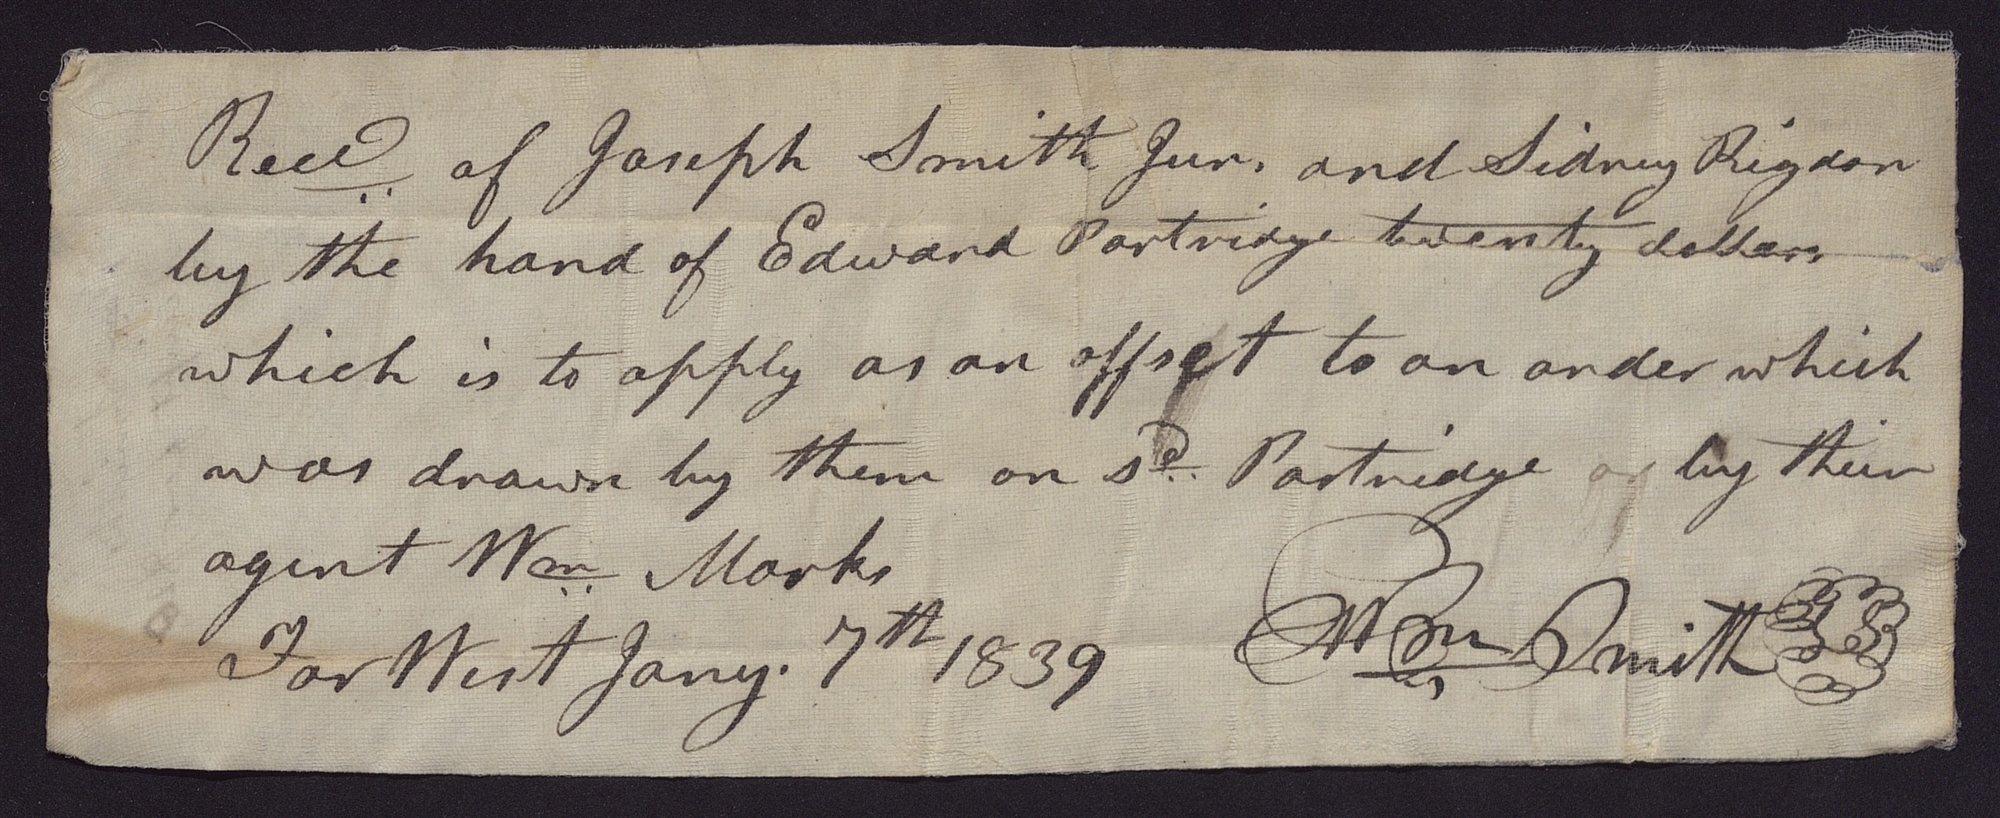 Recd. of Joseph Smith Jur. and Sidney Rigdon
by the hand of Edward Partridge twenty dollars
which is to apply as an offset to an order which
was drawn by them on sd. Partridge or by their
agent Wm. Marks
Far West Jany. 7th 1839 Wm Smith